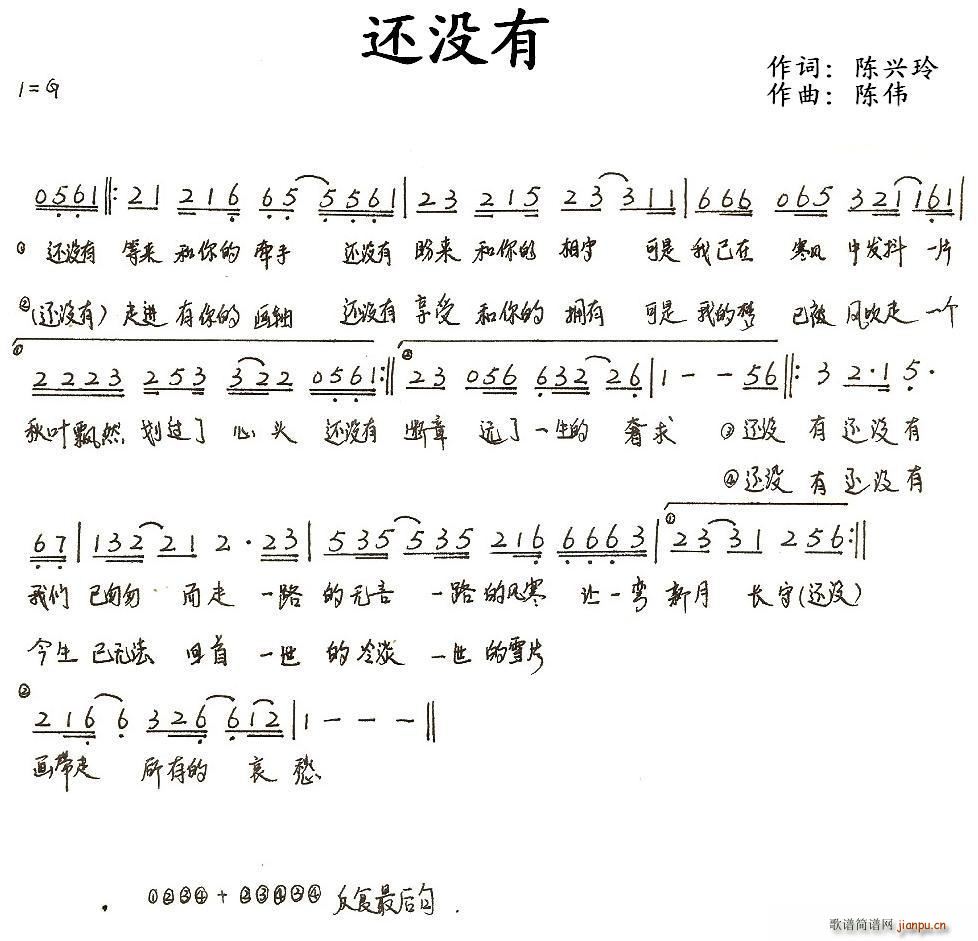 还没有
作词：陈兴玲
作曲：陈伟
1=G
0561‖: 21 216 65 5561 | 23 215 23 311 | 666 065 321 161 |
① 还没有 等来 和你的 牵手 还没有 盼来 和你的 相守 可是 我已在 寒风 中发抖 一片
②(还没有) 走进 有你的 画轴 还没有 享受 和你的 拥有 可是 我的梦 已被 风吹走 一个
① ②
2223 253 322 0561 :‖ 23 056 632 26 | 1 - - 56 ‖: 3 2·1 5·
秋叶飘然 划过了 心头 还没有 断章 远了一生的 奢求 ③还没 有 还没有
④还没 有 还没有
①
67 | 132 21 2·23 | 535 535 216 6663 | 23 31 256 :‖
我们 已匆匆 而走 一路 的无言 一路的风寒 让一弯 新月 长守(还没)
今生 已无法 回首 一世 的冷淡 一世 的雪片
②
216 6 326 612 | 1 - - - ‖
画带走 所有的 哀愁
①②③④+②③④③④ 反复最后句.
歌谱简谱网 jianpu.cn